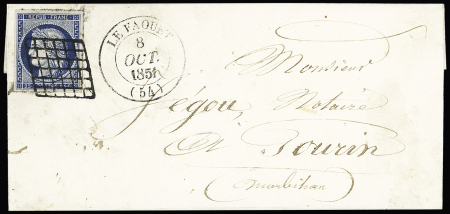 REPUB. FRANC.
LE FAOUET
8
OCT.
1851
(54)
Monsieur
Jégou, Notaire
à Gourin
Morbihan